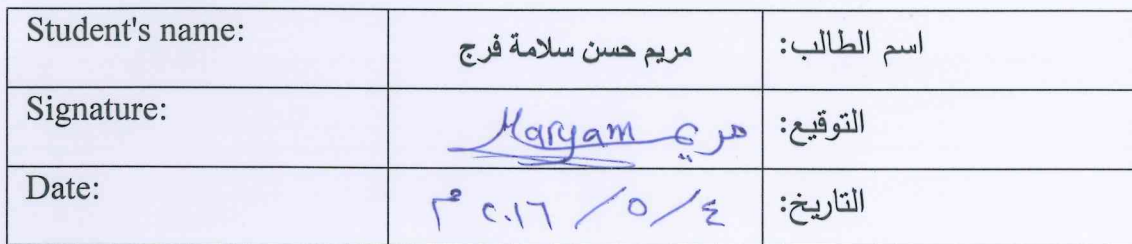 Student's name: مريم حسن سلامة فرج اسم الطالب:
Signature: Maryam مريم التوقيع:
Date: ٤/٥/٢٠١٦ م التاريخ: